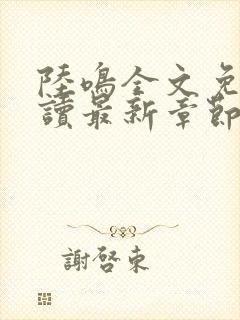 陸鳴全文免
讀最新章節
謝啓東